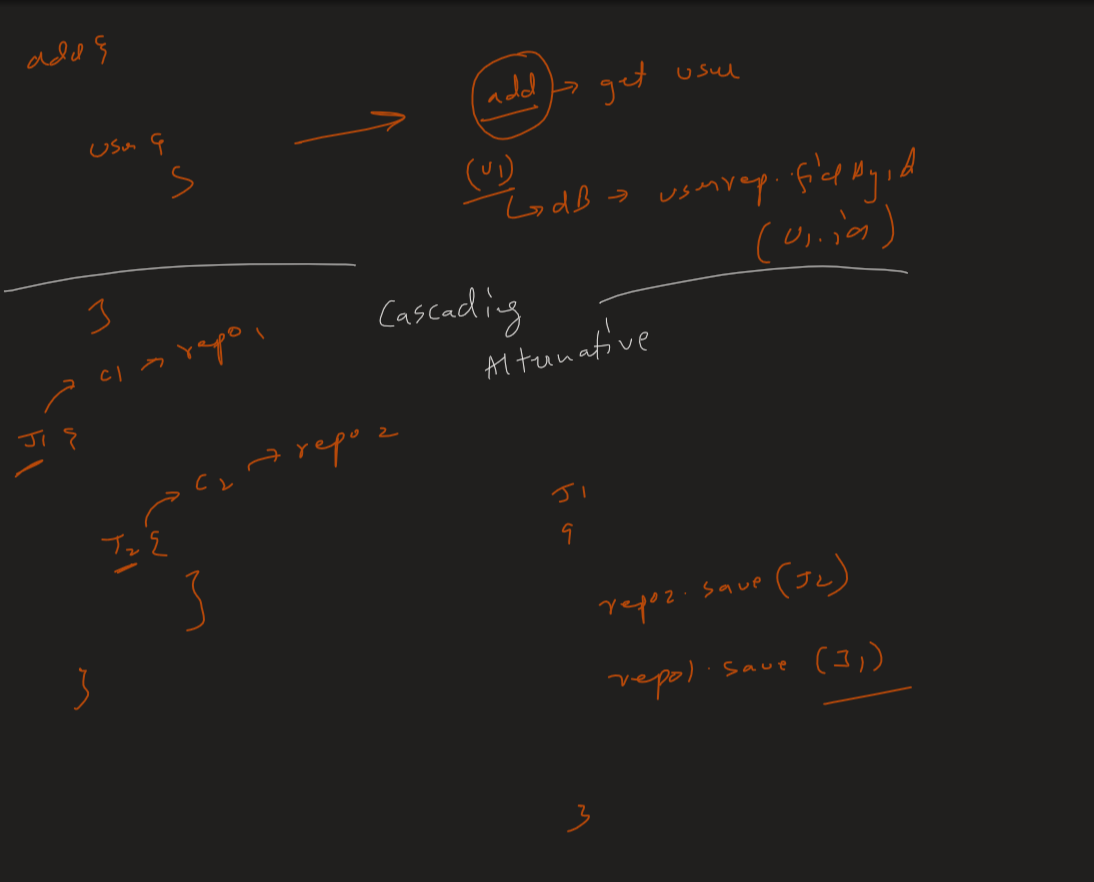 add {
add → get user
user {
}
(U1)
↳ dB → userrep. findById
(U1.id)
}
Cascading
Alternative
C1 → repo1
J1 {
C2 → repo2
J2 {
}
}
J1
{
repo2.save(J2)
repo1.save(J1)
}